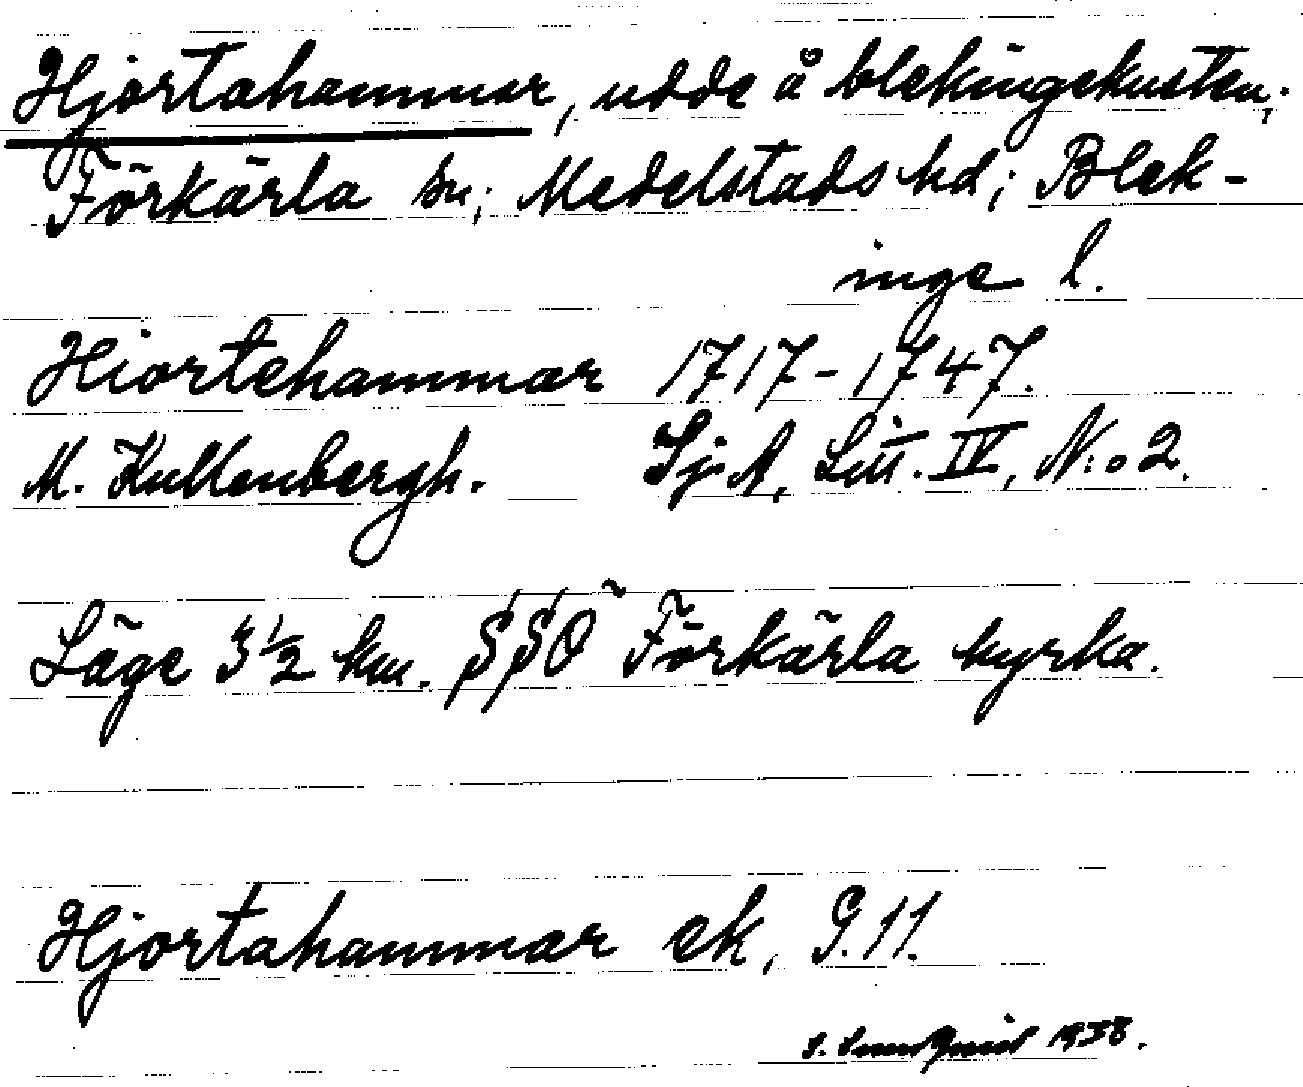 Hjortahammar, udde å blekingekusten.
Förkärla sn; Medelstads hd; Blek-
inge l.
Hiortehammar 1717-1747.
M. Kullenbergh. Sj. A, Litt. IV, N:o 2.
Läge 3 1/2 km. SSÖ Förkärla kyrka.
Hjortahammar ek, 9.11.
S. 1938.